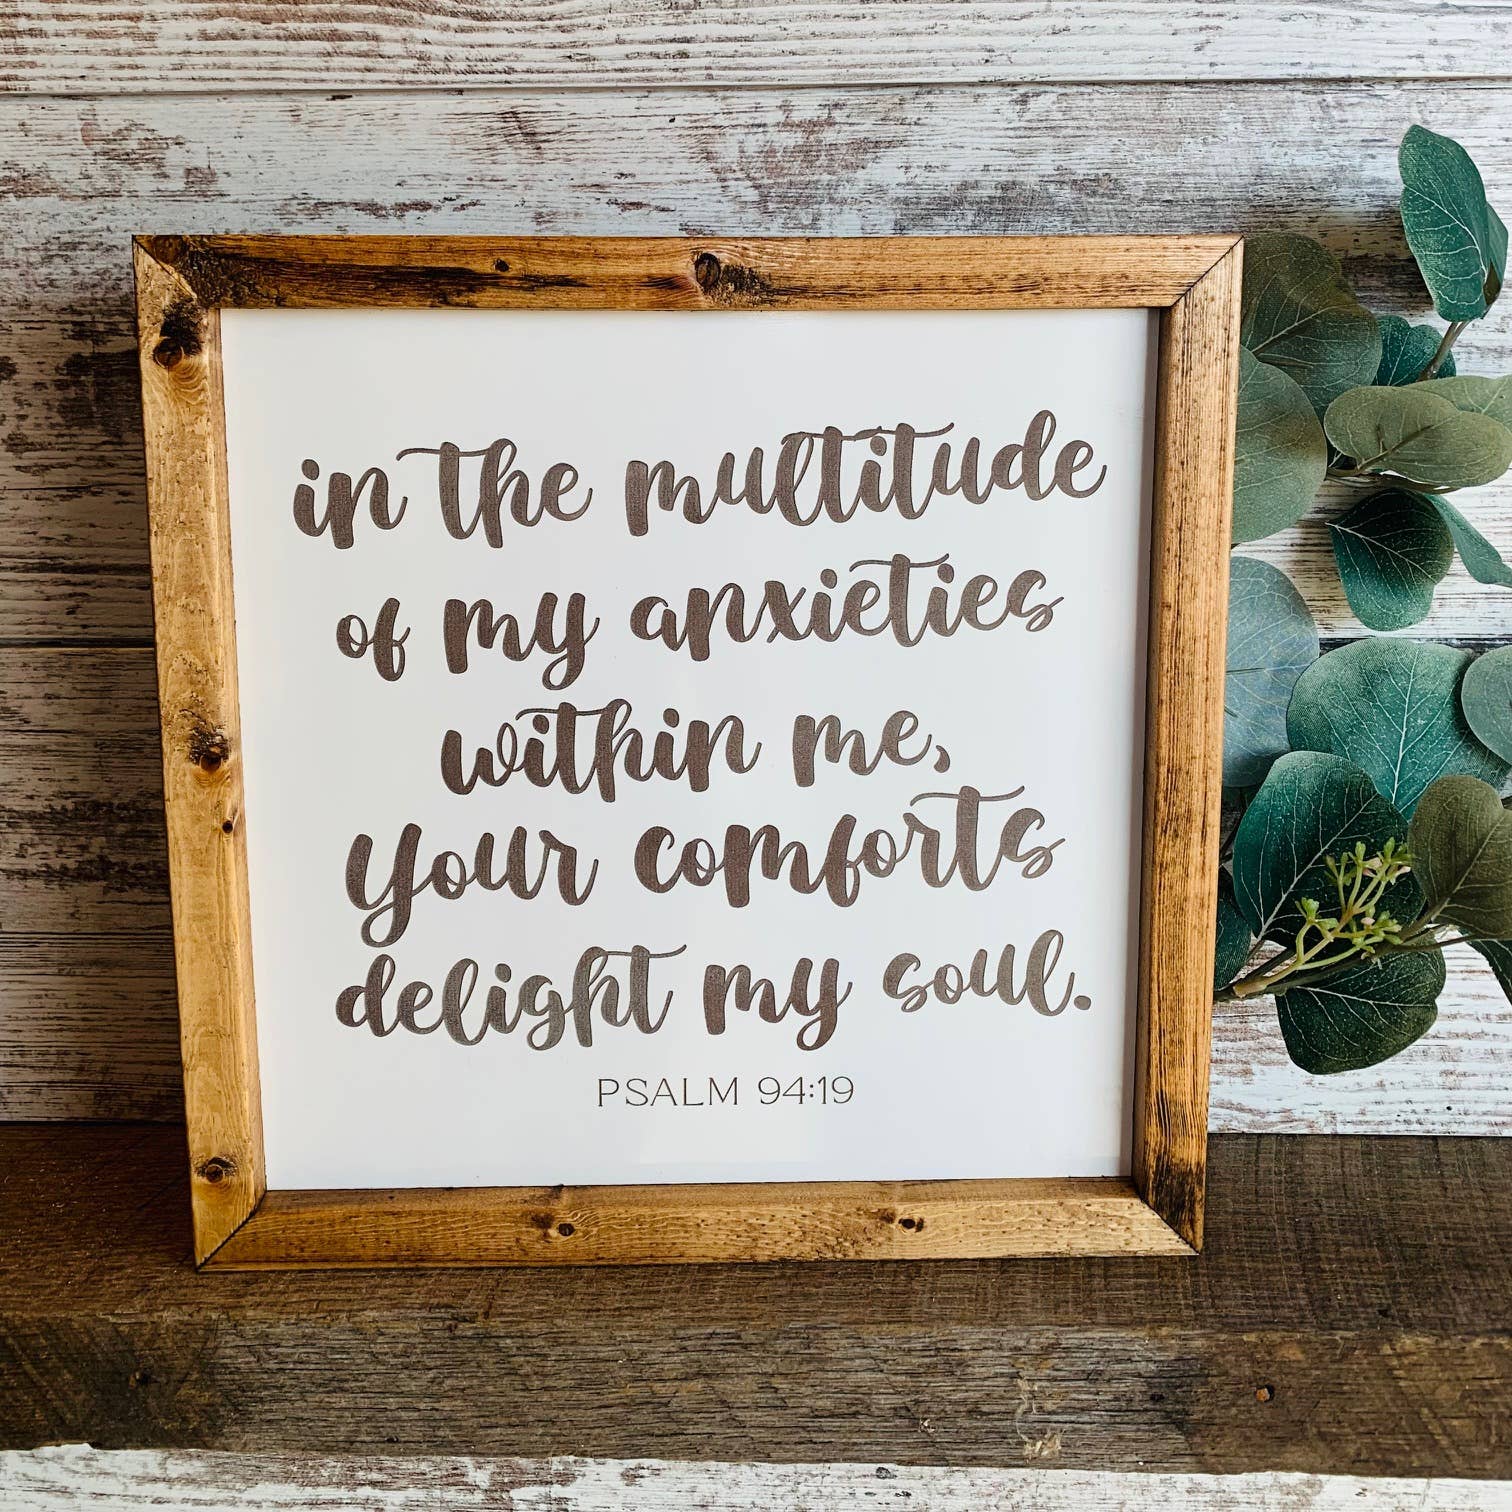 in the multitude
of my anxieties
within me,
Your comforts
delight my soul.
PSALM 94:19